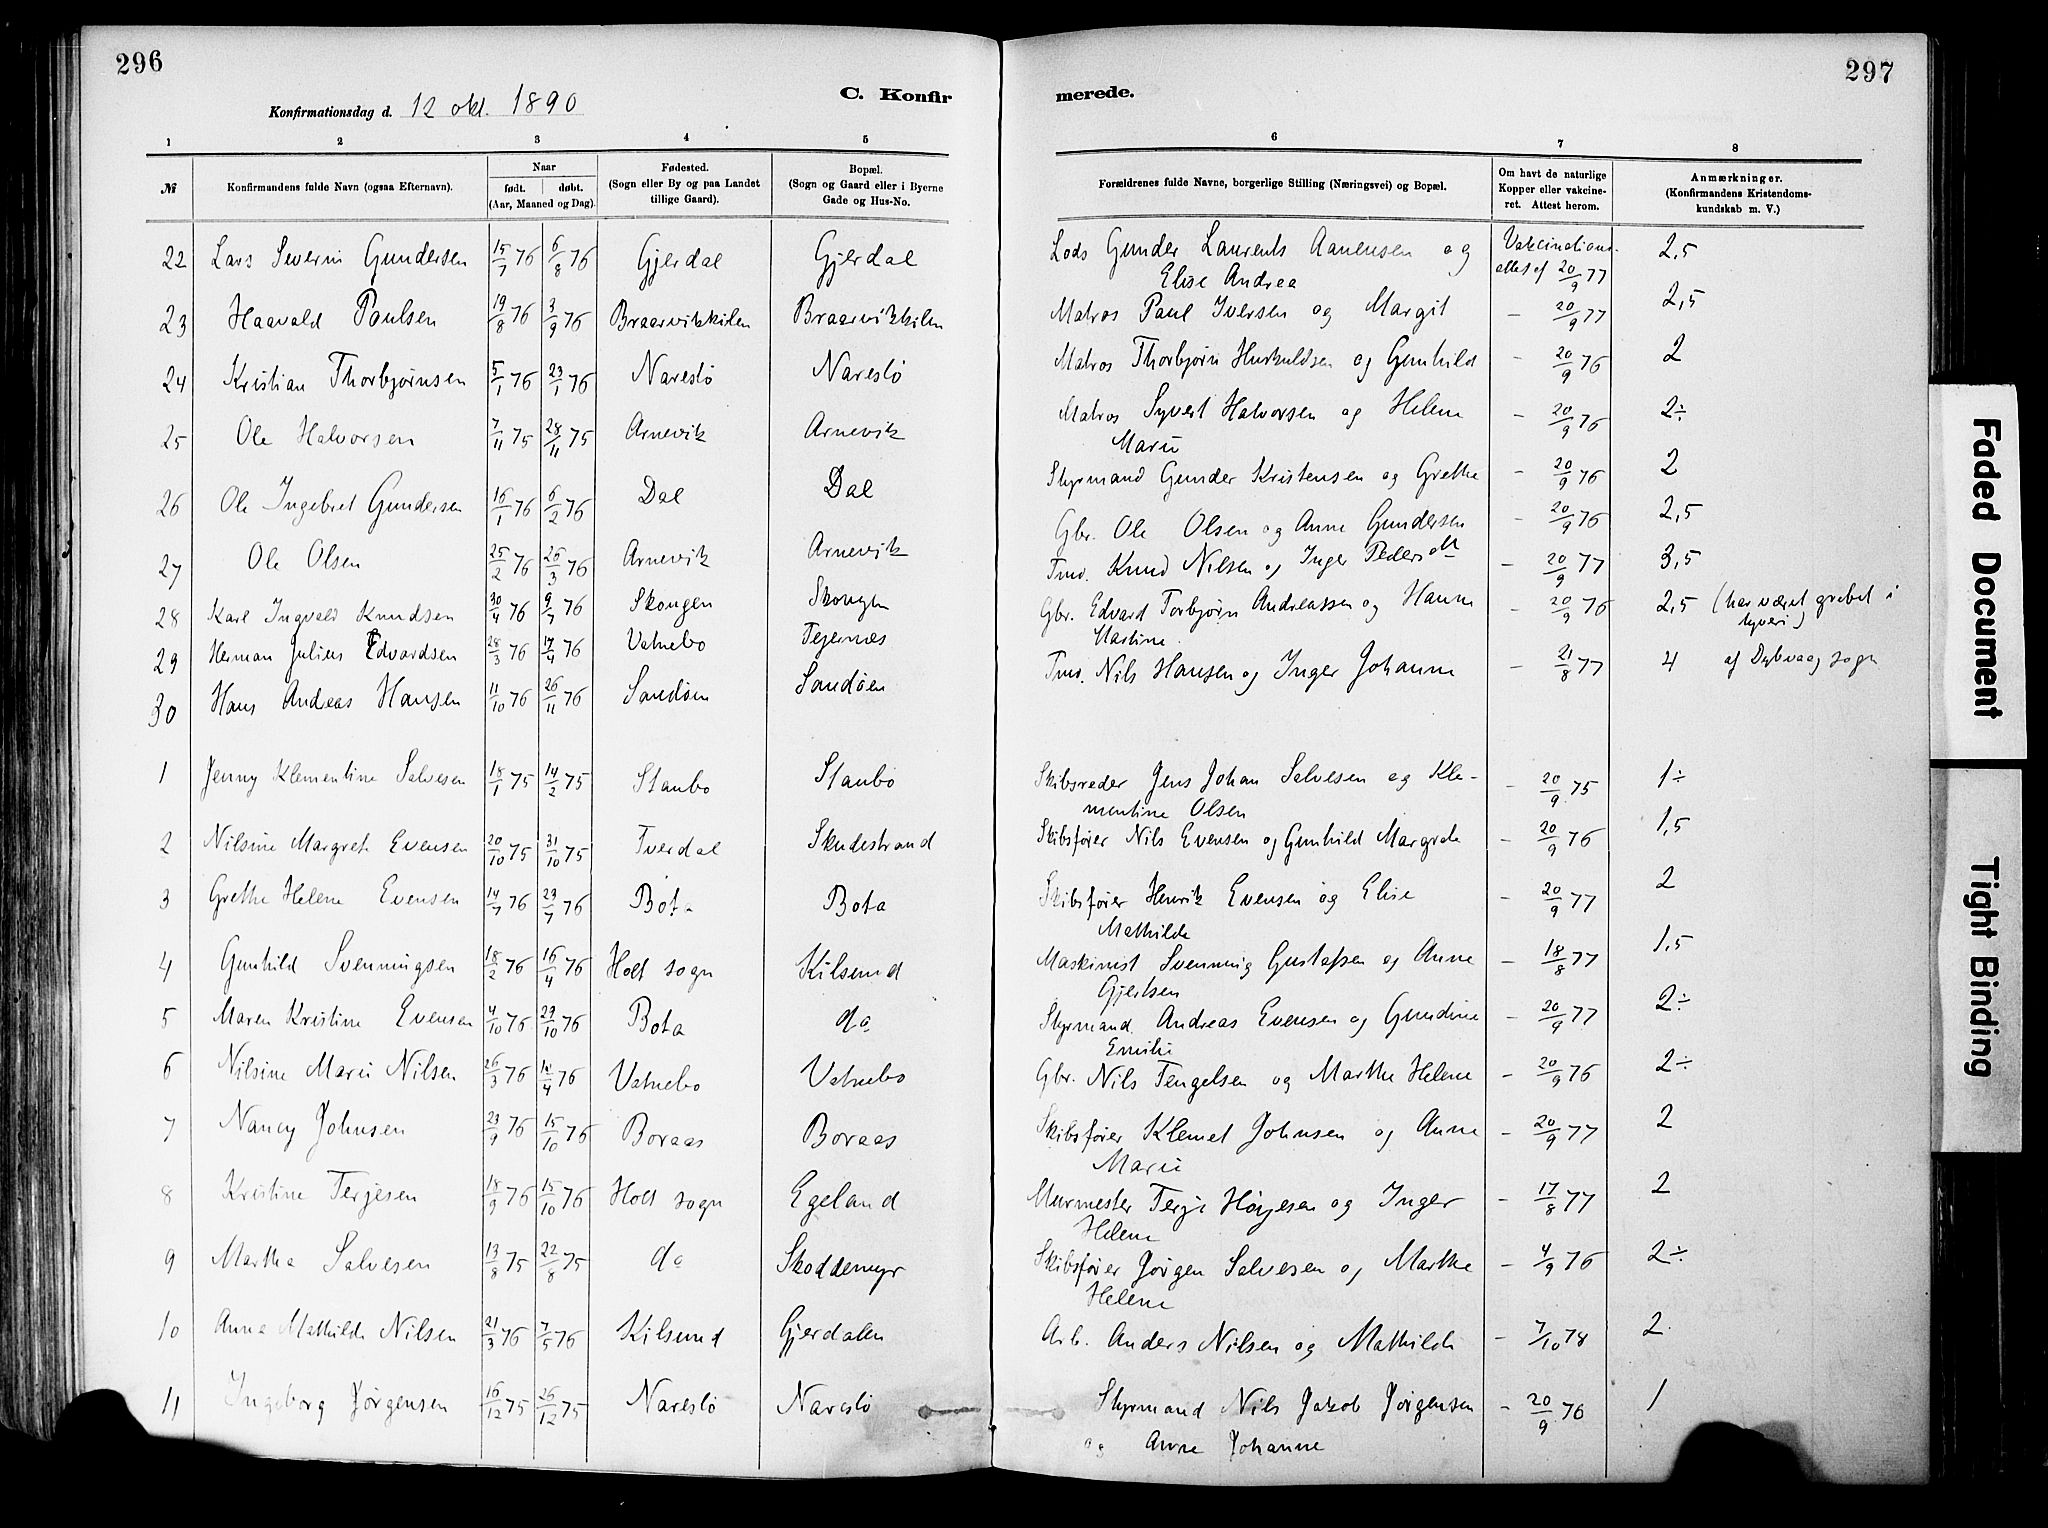 296
Konfirmationsdag d. 12 okt. 1890
C. Konfir
1 2 3 4 5
№ Konfirmandens fulde Navn (ogsaa Efternavn). Naar født. døbt. (Aar, Maaned og Dag). Fødested. (Sogn eller By og paa Landet tillige Gaard). Bopæl. (Sogn og Gaard eller i Byerne Gade og Hus-No.
22 Lars Severin Gundersen 15/7 76 6/8 76 Gjerdal Gjerdal
23 Haavald Paulsen 19/8 76 3/9 76 Braarvikkilen Braarvikkilen
24 Kristian Thorbjørnsen 5/1 76 23/1 76 Narestø Narestø
25 Ole Halvorsen 7/11 75 28/11 75 Arnevik Arnevik
26 Ole Ingebret Gundersen 16/1 76 6/2 76 Dal Dal
27 Ole Olsen 25/2 76 26/3 76 Arnevik Arnevik
28 Karl Ingvald Knudsen 30/4 76 9/7 76 Skongen Skongen
29 Herman Julius Edvardsen 28/3 76 17/4 76 Vatnebo Tejernæs
30 Hans Andreas Hansen 11/10 76 26/11 76 Sandøen Sandøen
1 Jenny Klementine Salvesen 18/1 75 14/2 75 Staubo Staubo
2 Nilsine Margrete Evensen 20/10 75 31/10 75 Tverdal Skudestrand
3 Grethe Helene Evensen 14/7 76 23/7 76 Bota Bota
4 Gunhild Svenningsen 18/2 76 16/4 76 Holt sogn Kilsund
5 Maren Kristine Evensen 4/10 76 29/10 76 Bota do
6 Nilsine Marie Nilsen 26/3 76 14/4 76 Vatnebo Vatnebo
7 Nancy Johnsen 23/9 76 15/10 76 Boraas Boraas
8 Kristine Terjesen 18/9 76 15/10 76 Holt sogn Egeland
9 Martha Salvesen 13/8 75 22/8 75 do Skoddemyr
10 Anna Mathilde Nilsen 21/3 76 7/5 76 Kilsund Gjerdalen
11 Ingeborg Jørgensen 16/12 75 26/12 75 Narestø Narestø
297
merede.
6 7 8
Forældrenes fulde Navne, borgerlige Stilling (Næringsvei) og Bopæl. Om havt de naturlige Kopper eller vakcineret. Attest herom. Anmærkninger. (Konfirmandens Kristendomskundskab m. V.)
Lods Gunder Laurents Aanensen og Vakcinations- 2,5
Elise Andrea attest af 20/9 77
Matros Paul Iversen og Margit – 20/9 77 2,5
Matros Thorbjørn Huskuldsen og Gunhild – 20/9 76 2
Matros Syvert Halvorsen og Helene – 20/9 76 2÷
Marie
Styrmand Gunder Kristensen og Grethe – 20/9 76 2
Gbr. Ole Olsen og Anne Gundersen – 20/9 76 2,5
Tmd. Knud Nilsen og Inger Pedersdt – 20/9 77 3,5
Gbr. Edvard Torbjørn Andreassen og Hanne – 20/9 76 2,5 (har været grebet i
Martine tyveri)
Tmd. Nils Hansen og Inger Johanne – 21/8 77 4 af Dybvaag sogn
Skibsreder Jens Johan Salvesen og Kle- – 20/9 75 1÷
mentine Olsen
Skibsfører Nils Evensen og Gunhild Margrete – 20/9 76 1,5
Skibsfører Henrik Evensen og Elise – 20/9 77 2
Mathilde
Maskinist Svenning Gustafsen og Anne – 18/8 77 1,5
Gjertsen
Styrmand Andreas Evensen og Gundine – 20/9 77 2÷
Emilie
Gbr. Nils Tengelsen og Marthe Helene – 20/9 76 2÷
Skibsfører Klemet Johnsen og Anne – 20/9 77 2
Marie
Murmester Terje Høyesen og Inger – 17/8 77 2
Helene
Skibsfører Jørgen Salvesen og Marthe – 4/9 76 2÷
Helene
Arb. Anders Nilsen og Mathilde – 7/10 78 2
Styrmand Nils Jakob Jørgensen – 20/9 76 1
og Anne Johanne
Faded Document
Tight Binding